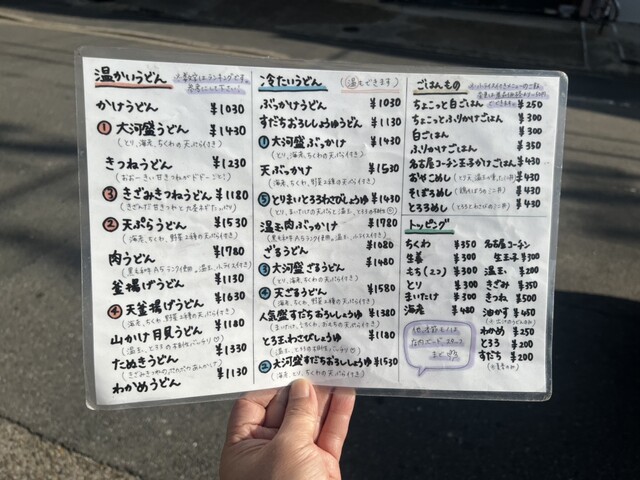 温かいうどん
かけうどん ¥1030
① 大河盛うどん ¥1430
(とり、海老、ちくわの天ぷら付き)
きつねうどん ¥1230
③ きざみきつねうどん ¥1180
② 天ぷらうどん ¥1530
(海老、ちくわ、野菜2種の天ぷら付き)
肉うどん ¥1780
釜揚げうどん ¥1130
④ 天釜揚げうどん ¥1630
(海老、ちくわ、野菜2種の天ぷら付き)
山かけ月見うどん ¥1180
たぬきうどん ¥1330
わかめうどん ¥1130
冷たいうどん (温もできます)
ぶっかけうどん ¥1030
すだちおろししょうゆうどん ¥1130
① 大河盛ぶっかけ ¥1430
(とり、海老、ちくわの天ぷら付き)
天ぶっかけ ¥1530
(海老、ちくわ、野菜2種の天ぷら付き)
⑤ とりまいとろろわさびしょうゆ ¥1430
温玉肉ぶっかけ ¥1780
ざるうどん ¥1080
③ 大河盛ざるうどん ¥1480
(とり、海老、ちくわの天ぷら付き)
④ 天ざるうどん ¥1580
(海老、ちくわ、野菜2種の天ぷら付き)
人気盛すだちおろししょうゆ ¥1380
とろ玉わさびしょうゆ ¥1180
(温玉、とろろ)
② 大河盛すだちおろししょうゆ ¥1530
(海老、とり、ちくわの天ぷら付き)
ごはんもの
ちょこっと白ごはん ¥250
ちょこっとふりかけごはん ¥300
白ごはん ¥300
ふりかけごはん ¥350
名古屋コーチン玉子かけごはん ¥430
¥430
そぼろめし ¥430
とろろめし ¥430
トッピング
ちくわ ¥350
生姜 ¥300
もち(2コ) ¥300
とり ¥300
まいたけ ¥300
海老 ¥480
名古屋コーチン
生玉子 ¥300
温玉 ¥200
きざみ ¥350
きつね ¥500
油かす ¥450
わかめ ¥250
とろろ ¥200
すだち ¥200